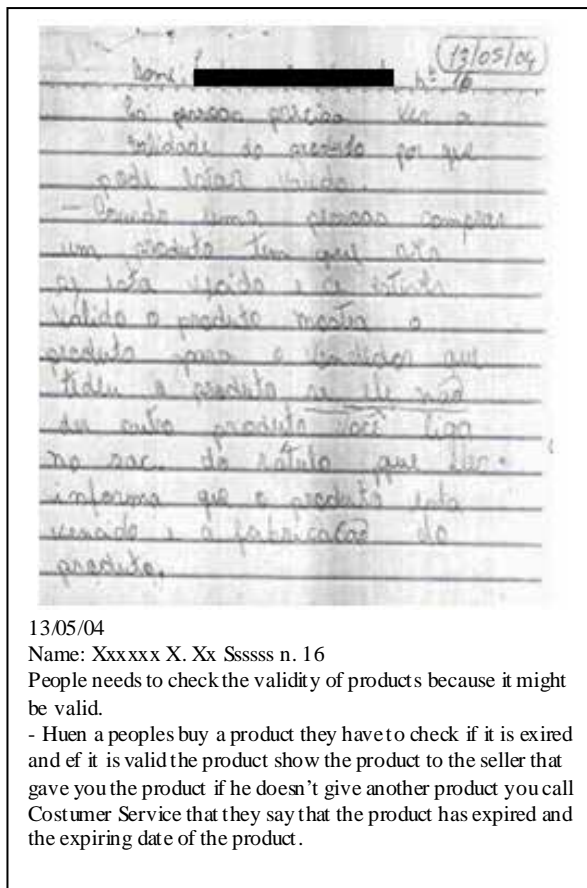 13/05/04
Nome: nº 16
As pessoas precisa ver a
validade do produto por que
pode estar
uma pessoas comprar
um produto tem que
se esta e ce
valido o produto mostra o
produto para o que
o produto se ele não
der outro produto você liga
no sac. do rótulo que
informa que o produto esta
e a fabricacão do
produto.
13/05/04
Name: Xxxxxx X. Xx Ssssss n. 16
People needs to check the validity of products because it might
be valid.
- Huen a peoples buy a product they have to check if it is exired
and ef it is valid the product show the product to the seller that
gave you the product if he doesn’t give another product you call
Costumer Service that they say that the product has expired and
the expiring date of the product.